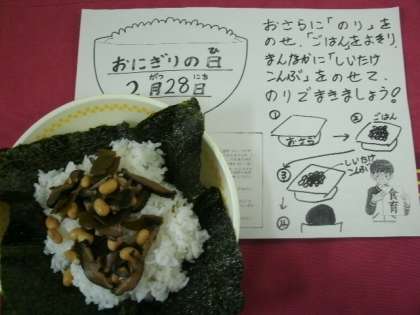 おにぎりの日
ひ
2月28日
がつ
にち
おさらに「のり」を
のせ、「ごはん」をよそり、
まんなかに「しいたけ
こんぶ」をのせて、
のりでまきましょう!
①
おさら
②
ごはん
③
しいたけ
こんぶ
④
食育